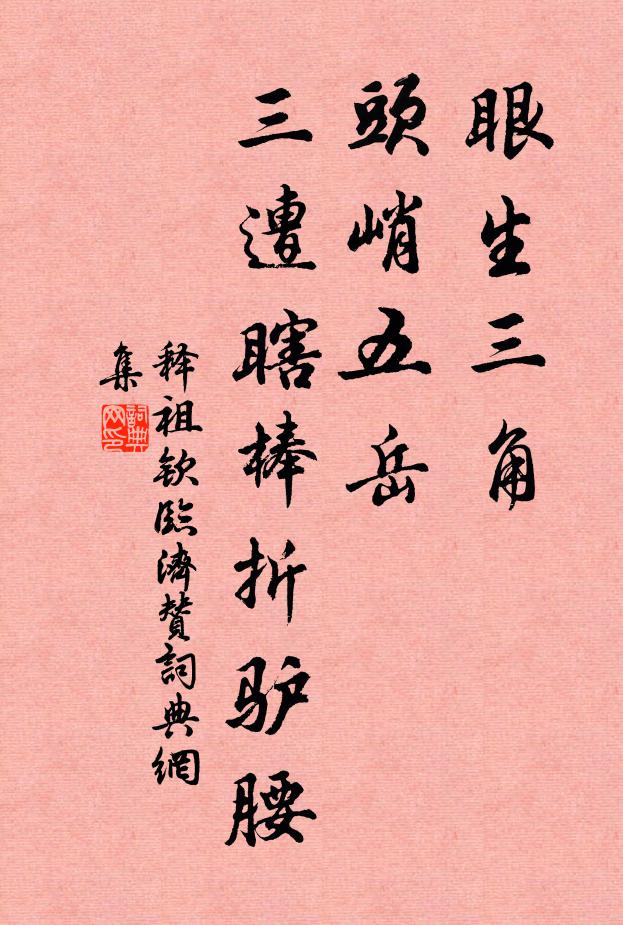 眼生三角
頭峭五岳
三遭瞎棒折驴腰
释祖钦臨濟赞詞典網
集
詞典
网印